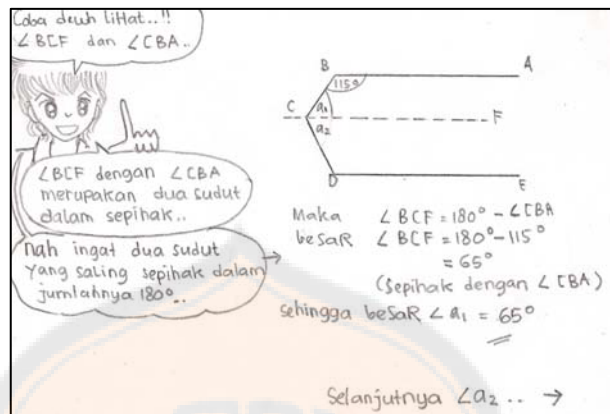 Coba deuh liHat..!!
∠BCF dan ∠CBA..
∠BCF dengan ∠CBA
merupakan dua sudut
dalam sepihak..
nah ingat dua sudut
yang saling sepihak dalam
jumlahnya 180°..
B
A
115°
C
a₁
a₂
F
D
E
Maka ∠BCF = 180° - ∠CBA
besaR ∠BCF = 180° - 115°
= 65°
(sepihak dengan ∠CBA)
sehingga besaR ∠a₁ = 65°
Selanjutnya ∠a₂ .. →